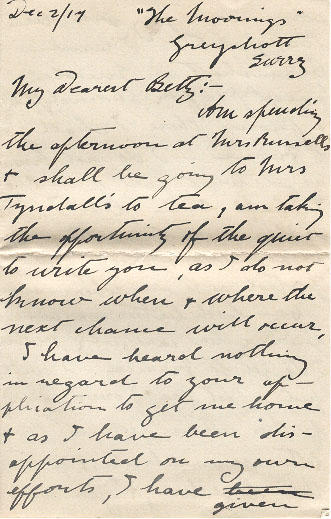 Dec 2/17 "The Moorings"
Greyshott
Surry
My Dearest Betty:-
Am spending
the afternoon at Mrs Russells
+ shall be going to Mrs
Tyndall's to tea, am taking
the opportunity of the quiet
to write you, as I do not
know when + where the
next chance will occur,
I have heard nothing
in regard to your ap-
plication to get me home
+ as I have been dis-
appointed on my own
efforts, I have been
given